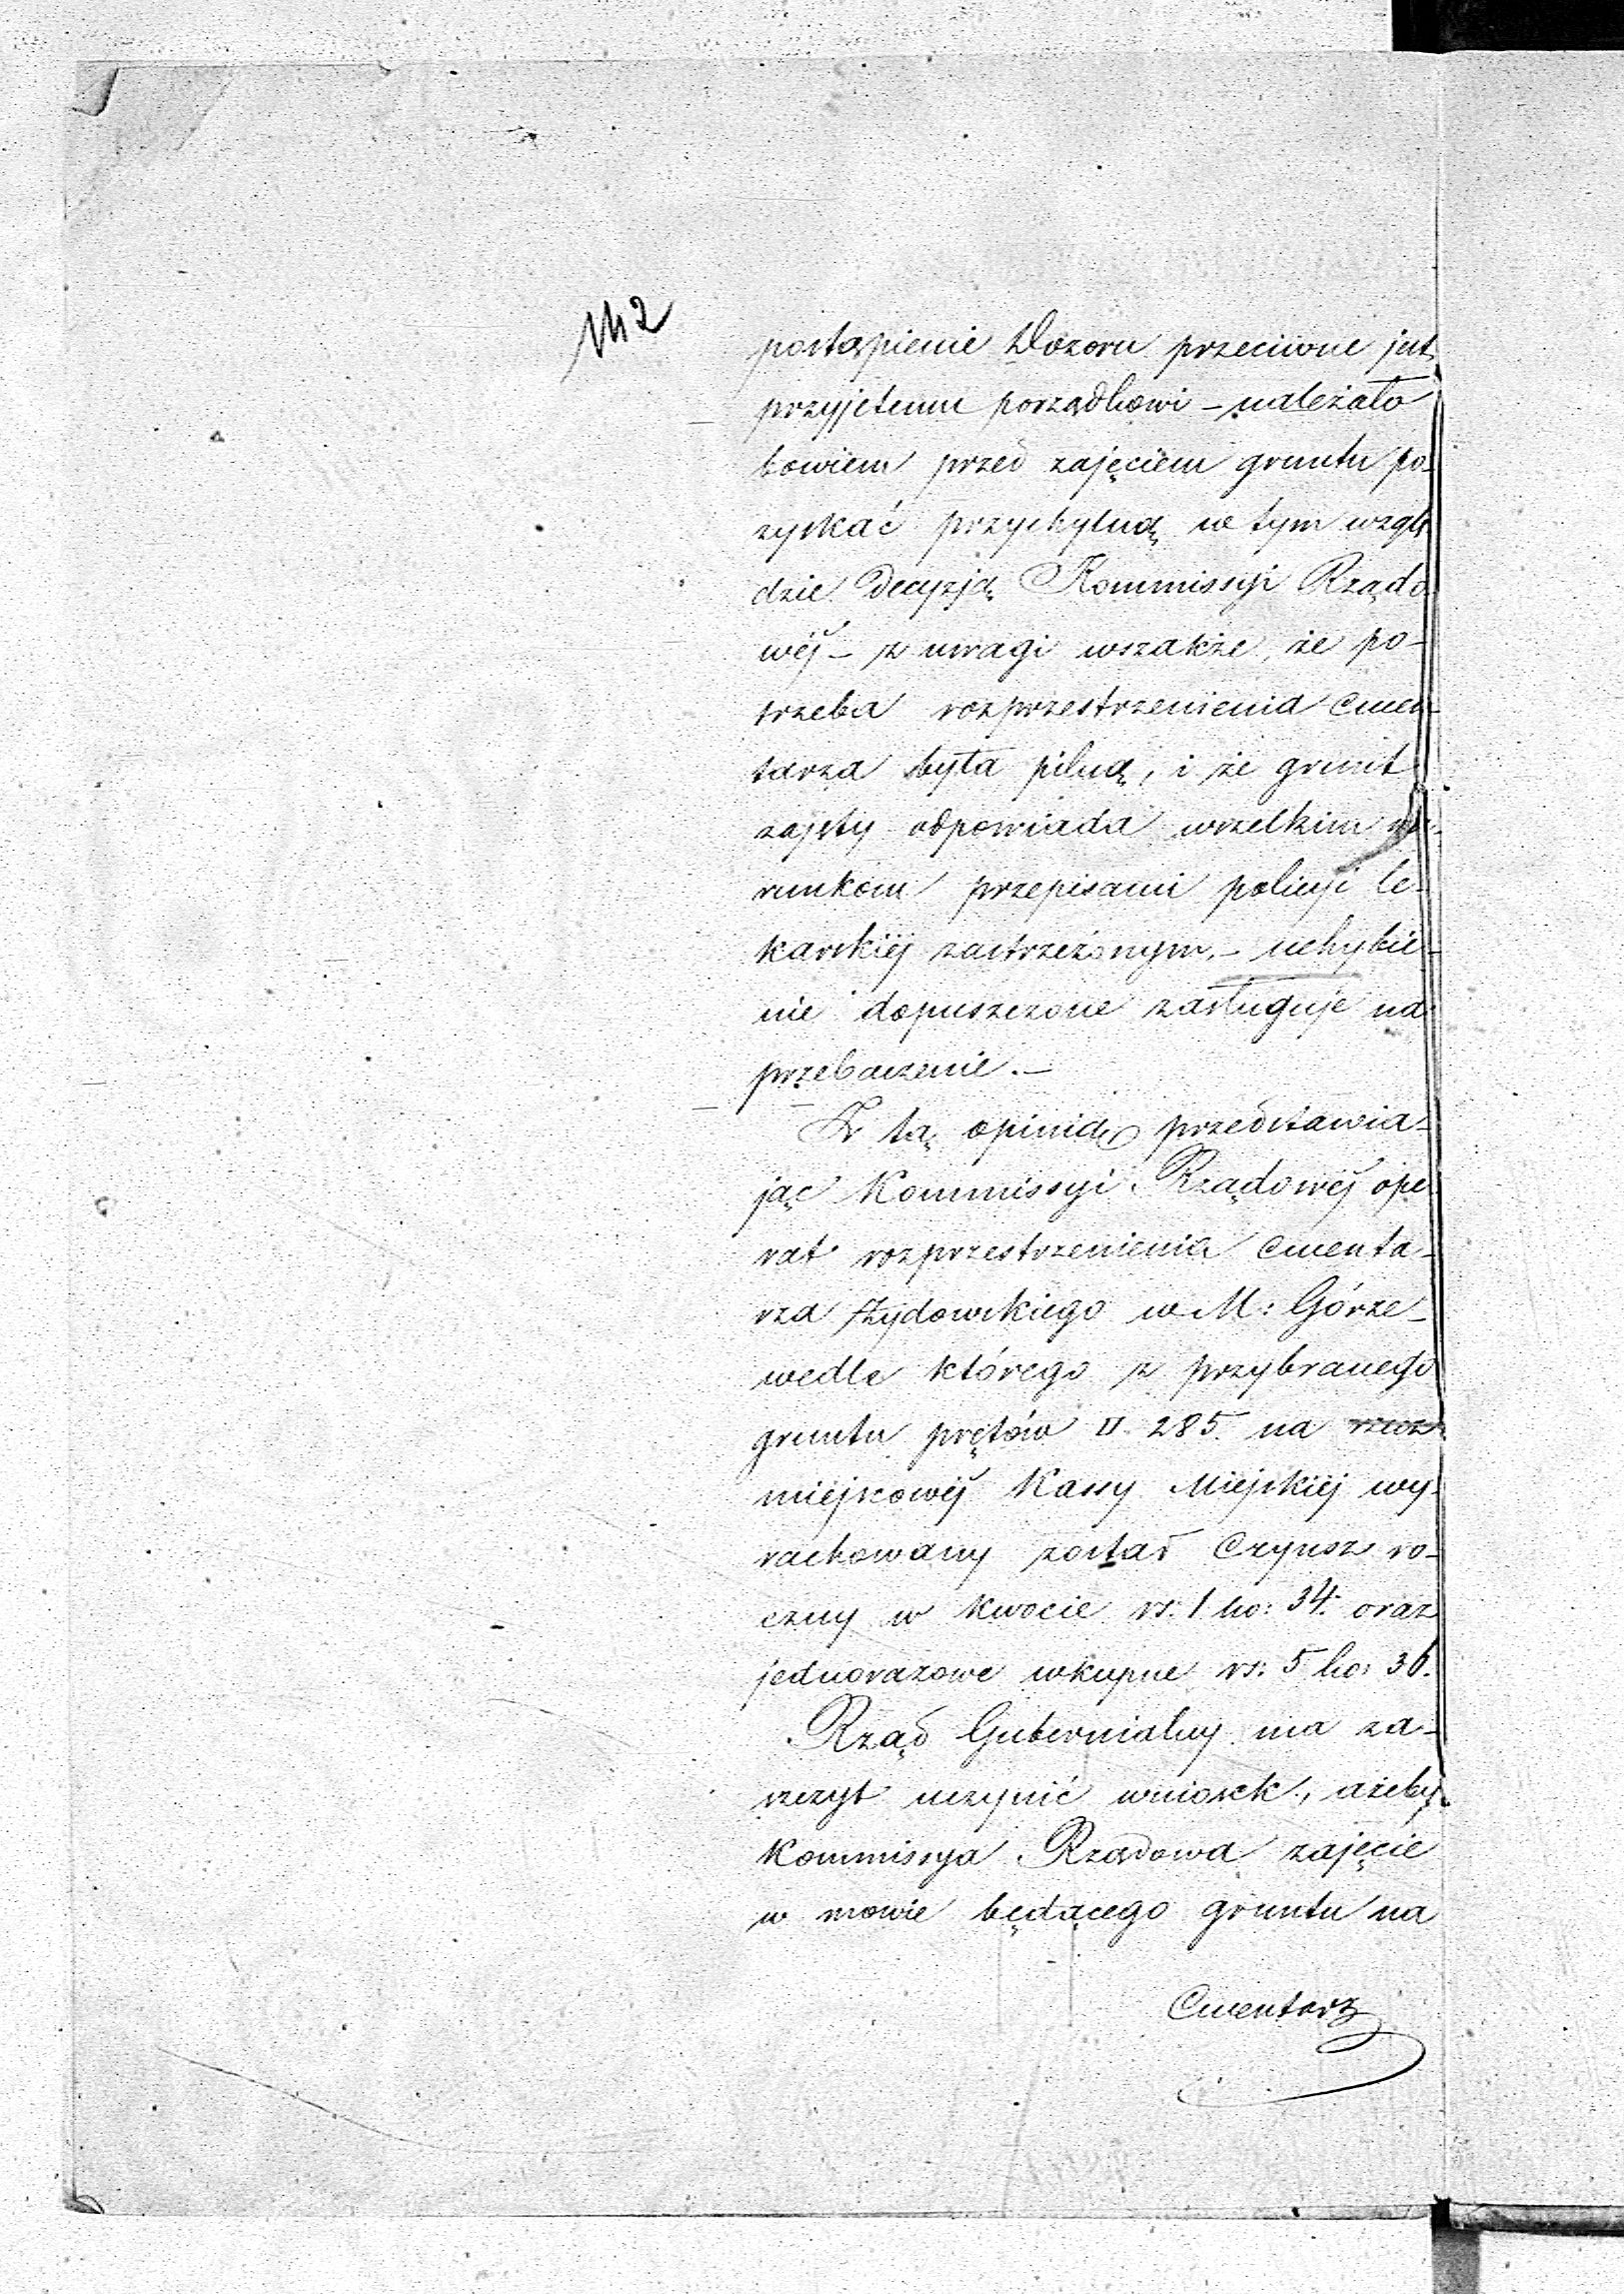 postąpienie Dozoru przeciwne jest
przyjętemu porządkowi – należało
bowiem przed zajęciem gruntu po-
zyskać przychylną w tym wzglę
dzie decyzją Kommissyi Rządo
wéj – z uwagi wszakże, że po-
trzeba rozprzestrzenienia Cmen
tarza była pilną, i że grunt
zajęty odpowiada wszelkim wa-
runkom przepisami policyi le-
karskiéj zastrzeżonym, – uchybie-
nie dopuszczone zasługuje na
przebaczenie. –
Z tą opinią przedstawia-
jąc Kommissyi Rządowéj ope
rat rozprzestrzenienia Cmenta-
rza Żydowskiego w M: Górze –
wedle którego z przybranego
gruntu prętów □ 285. na rzecz
miejscowéj Kassy Miejskiéj wy-
rachowany został Czynsz ro-
czny w kwocie rs: 1 ko: 34. oraz
jednorazowe wkupne rs: 5 ko: 36.
Rząd Gubernialny ma za-
szczyt uczynić wniosek, ażeby
Kommissya Rządowa zajęcie
w mowie będącego gruntu na
Cmentarz